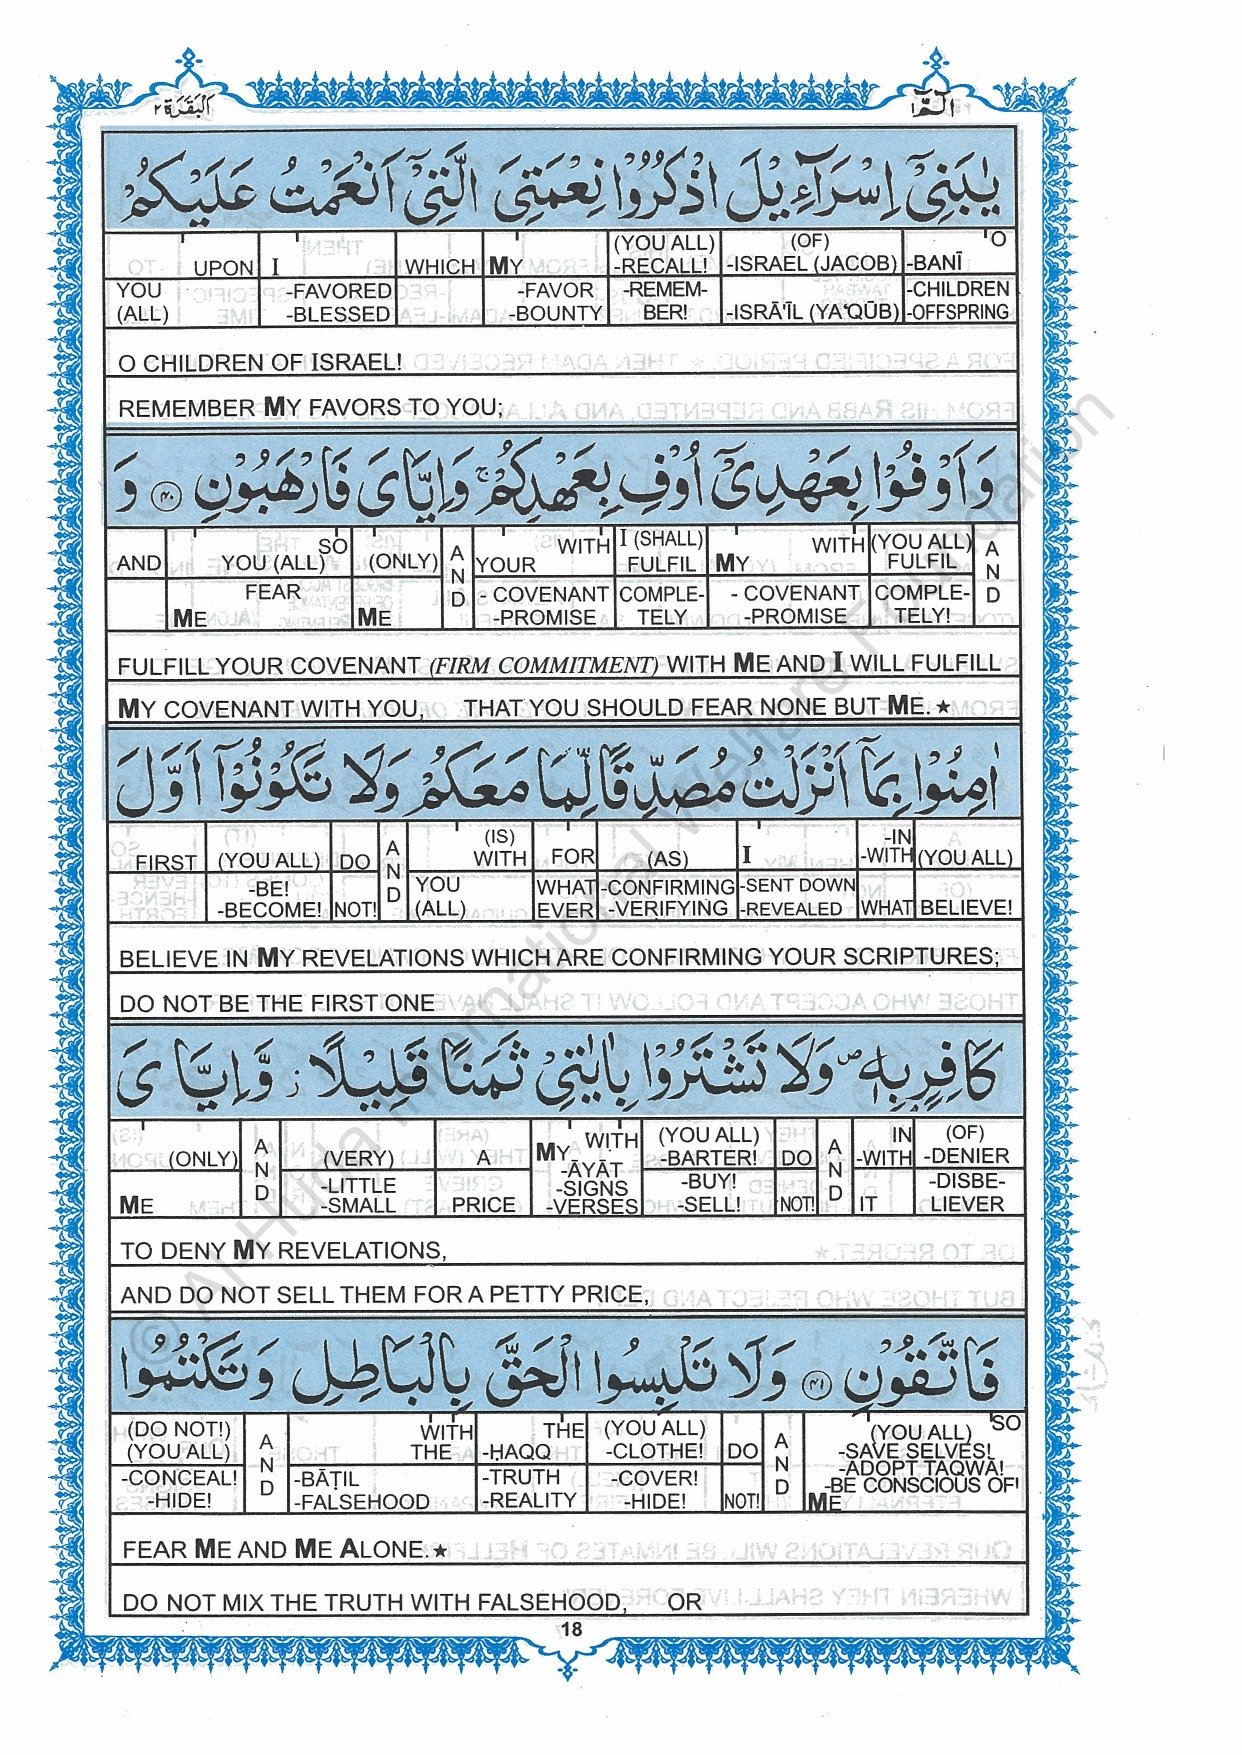 الٓمّٓ ١ البقرة ٢
يٰبَنِىْٓ اِسْرَآءِيْلَ اذْكُرُوْا نِعْمَتِىَ الَّتِىْٓ اَنْعَمْتُ عَلَيْكُمْ
UPON I WHICH MY (YOU ALL) -RECALL! (OF) -ISRAEL (JACOB) O -BANĪ
YOU (ALL) -FAVORED -BLESSED -FAVOR -BOUNTY -REMEM- BER! -ISRĀ'ĪL (YA'QŪB) -CHILDREN -OFFSPRING
O CHILDREN OF ISRAEL!
REMEMBER MY FAVORS TO YOU;
وَاَوْفُوْا بِعَهْدِىْٓ اُوْفِ بِعَهْدِكُمْ ۚ وَاِيَّاىَ فَارْهَبُوْنِ ﴿٤٠﴾ وَ
AND SO YOU (ALL) (ONLY) AND YOUR WITH I (SHALL) FULFIL MY WITH (YOU ALL) FULFIL AND
FEAR ME ME - COVENANT -PROMISE COMPLE- TELY - COVENANT -PROMISE COMPLE- TELY!
FULFILL YOUR COVENANT (FIRM COMMITMENT) WITH ME AND I WILL FULFILL
MY COVENANT WITH YOU, THAT YOU SHOULD FEAR NONE BUT ME.★
اٰمِنُوْا بِمَآ اَنْزَلْتُ مُصَدِّقًا لِّمَا مَعَكُمْ وَلَا تَكُوْنُوْٓا اَوَّلَ
FIRST (YOU ALL) DO AND (IS) WITH FOR (AS) I -IN -WITH (YOU ALL)
-BE! -BECOME! NOT! YOU (ALL) WHAT EVER -CONFIRMING -VERIFYING -SENT DOWN -REVEALED WHAT BELIEVE!
BELIEVE IN MY REVELATIONS WHICH ARE CONFIRMING YOUR SCRIPTURES;
DO NOT BE THE FIRST ONE
كَافِرٍۭ بِهٖ ۖ وَلَا تَشْتَرُوْا بِاٰيٰتِىْ ثَمَنًا قَلِيْلًا ز وَّاِيَّاىَ
(ONLY) AND (VERY) A MY WITH (YOU ALL) -BARTER! DO AND IN -WITH (OF) -DENIER
ME -LITTLE -SMALL PRICE -ĀYĀT -SIGNS -VERSES -BUY! -SELL! NOT! IT -DISBE- LIEVER
TO DENY MY REVELATIONS,
AND DO NOT SELL THEM FOR A PETTY PRICE,
فَاتَّقُوْنِ ﴿٤١﴾ وَلَا تَلْبِسُوا الْحَقَّ بِالْبَاطِلِ وَتَكْتُمُوا
(DO NOT!) (YOU ALL) AND WITH THE THE -ḤAQQ (YOU ALL) -CLOTHE! DO AND SO (YOU ALL) -SAVE SELVES!
-CONCEAL! -HIDE! -BĀṬIL -FALSEHOOD -TRUTH -REALITY -COVER! -HIDE! NOT! -ADOPT TAQWĀ! -BE CONSCIOUS OF! ME
FEAR ME AND ME ALONE.★
DO NOT MIX THE TRUTH WITH FALSEHOOD, OR
18
© Al-Huda International Welfare Foundation